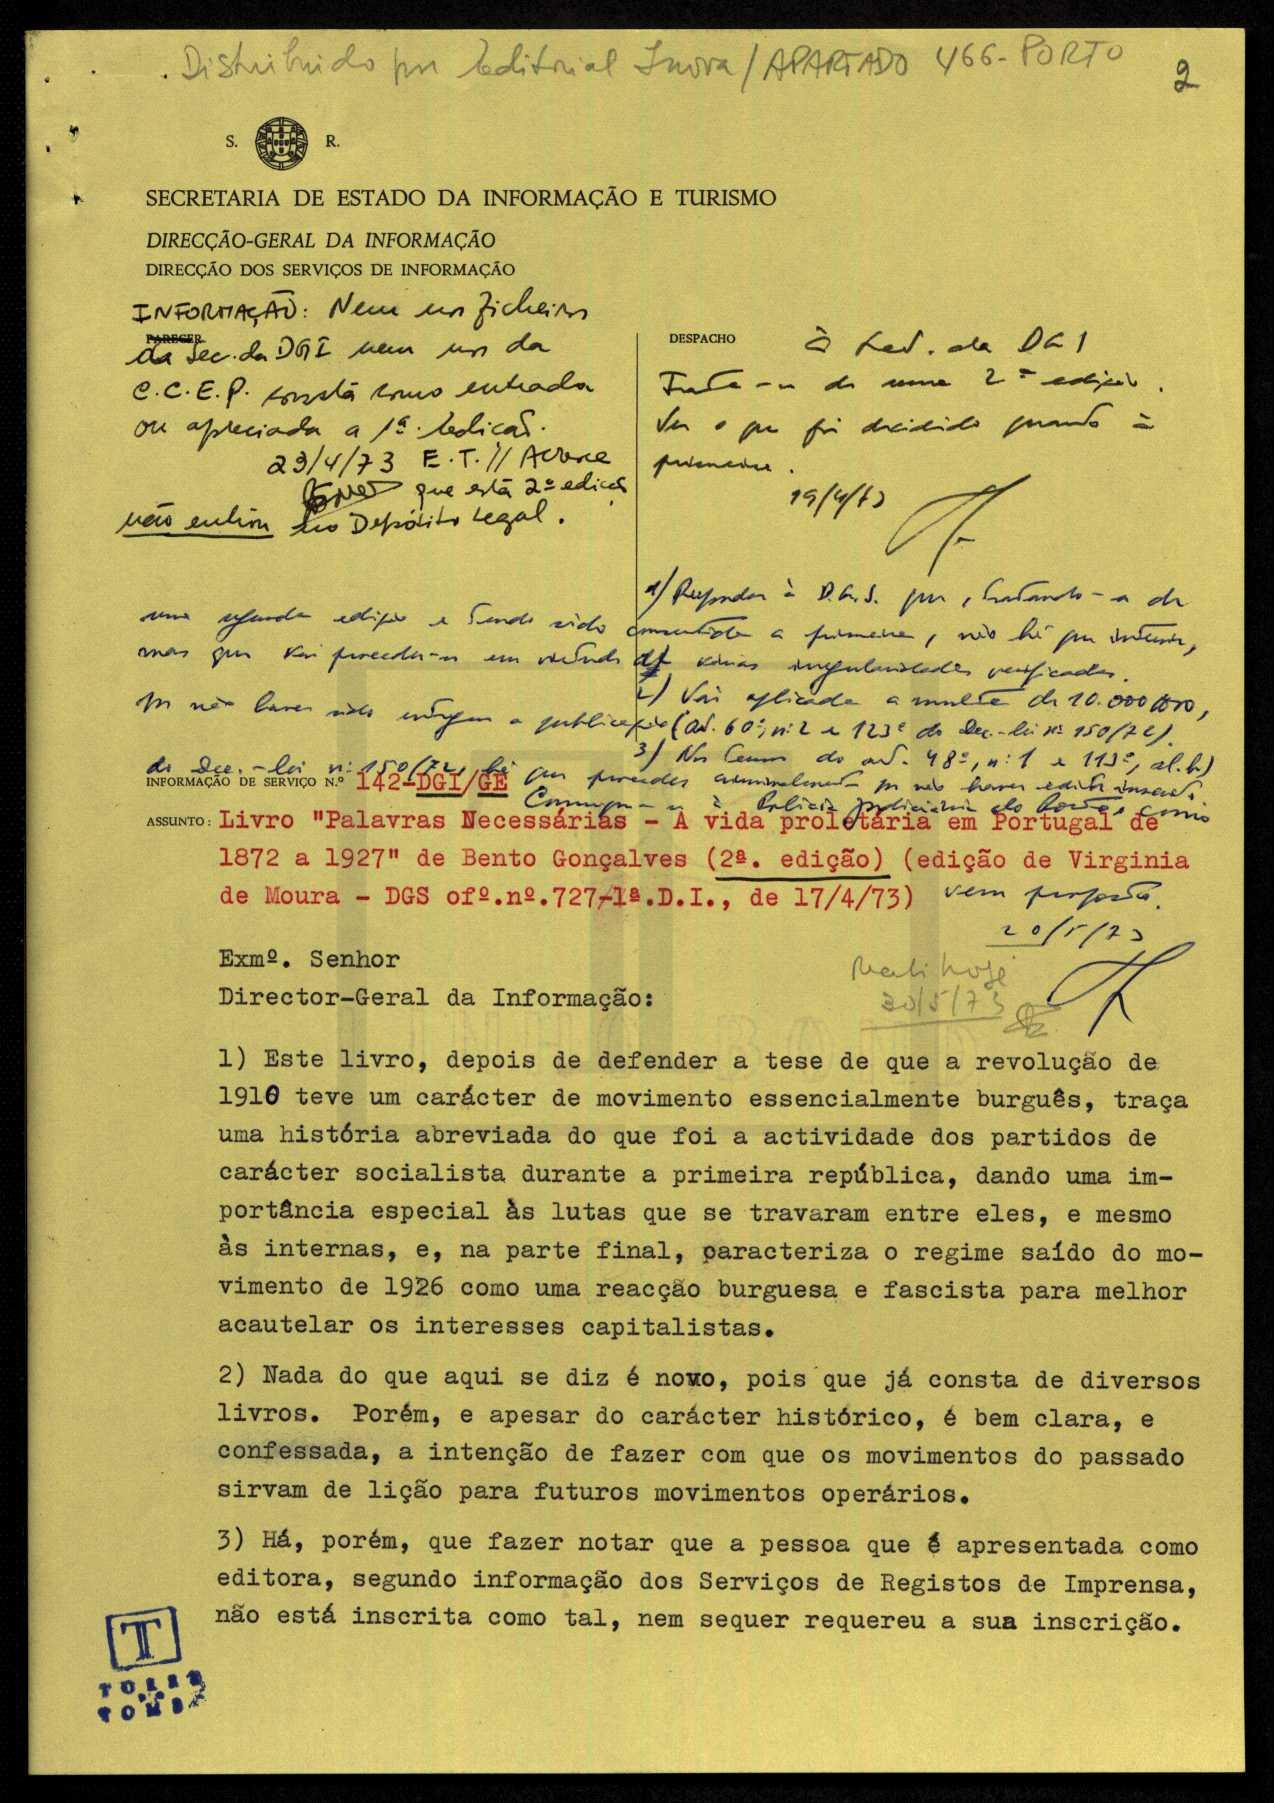 Distribuido por Editorial Inova / APARTADO 466 - PORTO
2
S. R.
SECRETARIA DE ESTADO DA INFORMAÇÃO E TURISMO
DIRECÇÃO-GERAL DA INFORMAÇÃO
DIRECÇÃO DOS SERVIÇOS DE INFORMAÇÃO
INFORMAÇÃO: Nem nos ficheiros
PARECER
da Sec. da DGI nem nos da
C.C.E.P. consta como entrada
ou apreciada a 1ª. Edição.
23/4/73 E.T. // Acresce
que esta 2ª edição
não entrou no Depósito Legal.
DESPACHO
À da DGI
Trata-se de uma 2ª edição.
Ver o que foi decidido quanto à
primeira.
19/4/73
1) Responder à D.G.S. que, tratando-se de
uma segunda edição e tendo sido consentida a primeira, não há que intervir,
mas que vai proceder-se em virtude de várias irregularidades verificadas.
2) Vai aplicada a multa de 10.000$00,
por não haver sido entregue a publicação (art. 60º, nº 2 e 123º do Dec.-lei nº 150/72).
3) Nos termos do art. 48º, nº 1 e 113º, al. b)
do Dec.-lei nº 150/72, há que proceder criminalmente por não haver editor inscrito.
INFORMAÇÃO DE SERVIÇO N.º 142-DGI/GE
Comunique-se à Polícia Judiciária do Porto, como
ASSUNTO: Livro "Palavras Necessárias - A vida proletária em Portugal de
1872 a 1927" de Bento Gonçalves (2ª. edição) (edição de Virginia
de Moura - DGS ofº.nº.727-1ª.D.I., de 17/4/73)
vem proposto.
20/5/73
Exmº. Senhor
Director-Geral da Informação:
hoje
30/5/73
1) Este livro, depois de defender a tese de que a revolução de
1910 teve um carácter de movimento essencialmente burguês, traça
uma história abreviada do que foi a actividade dos partidos de
carácter socialista durante a primeira república, dando uma im-
portância especial às lutas que se travaram entre eles, e mesmo
às internas, e, na parte final, caracteriza o regime saído do mo-
vimento de 1926 como uma reacção burguesa e fascista para melhor
acautelar os interesses capitalistas.
2) Nada do que aqui se diz é novo, pois que já consta de diversos
livros. Porém, e apesar do carácter histórico, é bem clara, e
confessada, a intenção de fazer com que os movimentos do passado
sirvam de lição para futuros movimentos operários.
3) Há, porém, que fazer notar que a pessoa que é apresentada como
editora, segundo informação dos Serviços de Registos de Imprensa,
não está inscrita como tal, nem sequer requereu a sua inscrição.
T
TORRE
DO
TOMBO